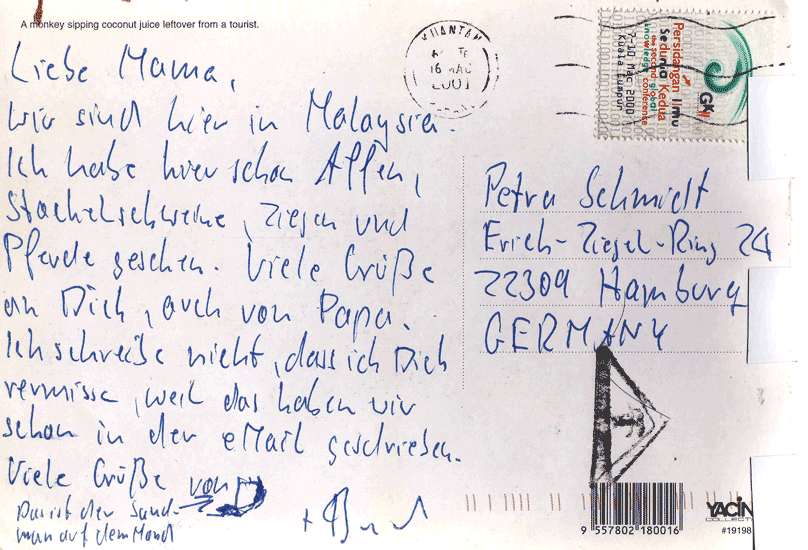 A monkey sipping coconut juice leftover from a tourist.
Liebe Mama,
wir sind hier in Malaysia.
Ich habe hier schon Affen,
Stachelschweine, Ziegen und
Pferde gesehen. Viele Grüße
an Dich, auch von Papa.
Ich schreibe nicht, dass ich Dich
vermisse, weil das haben wir
schon in der eMail geschrieben.
Viele Grüße von
Das ist der Sand-
man auf dem Mond
KUANTAN
16 MAC
2001
Persidangan Ilmu
Sedunia Kedua
the second global
knowledge conference
7-10 Mac 2000
Kuala Lumpur
GKII
Petra Schmidt
Erich-Ziegel-Ring 24
22309 Hamburg
GERMANY
9 557802 180016
YACIN
COLLECTI
#19198